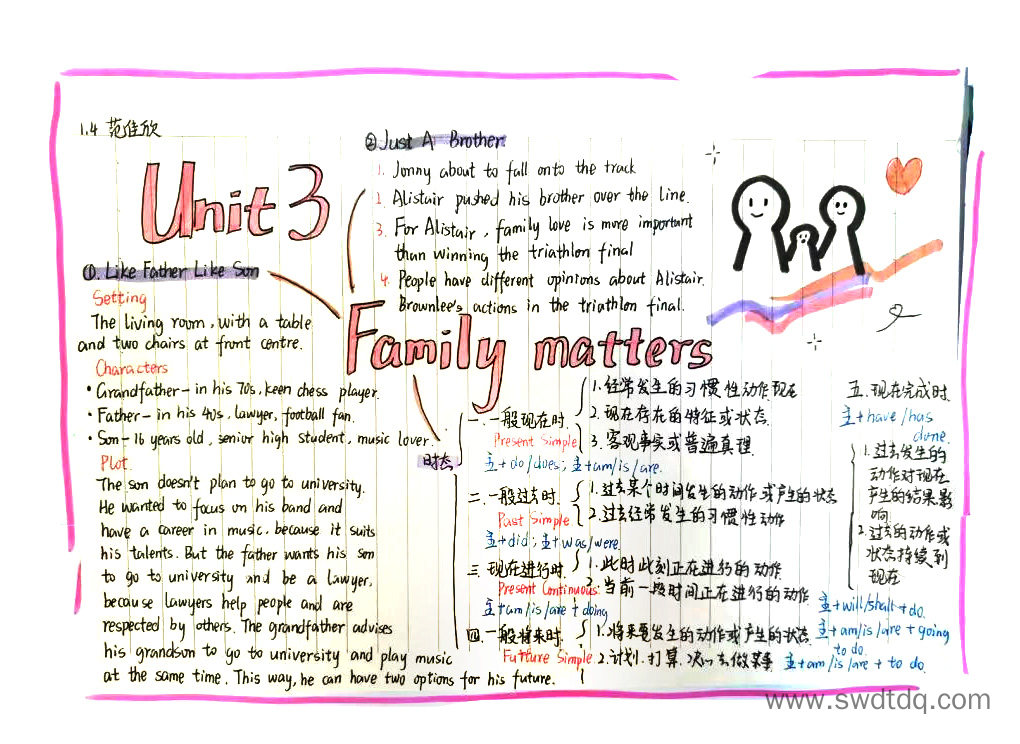 1.4 范佳欣
Unit 3
Family matters
①. Like Father Like Son
Setting
The living room, with a table
and two chairs at front centre.
Characters
• Grandfather – in his 70s, keen chess player.
• Father – in his 40s, lawyer, football fan.
• Son – 16 years old, senior high student, music lover.
Plot
The son doesn't plan to go to university.
He wanted to focus on his band and
have a career in music, because it suits
his talents. But the father wants his son
to go to university and be a lawyer,
because lawyers help people and are
respected by others. The grandfather advises
his grandson to go to university and play music
at the same time. This way, he can have two options for his future.
② Just A Brother
1. Jonny about to fall onto the track
2. Alistair pushed his brother over the line.
3. For Alistair, family love is more important
than winning the triathlon final
4. People have different opinions about Alistair.
Brownlee's actions in the triathlon final.
时态
一. 一般现在时.
Present Simple
主+do/does; 主+am/is/are.
1. 经常发生的习惯性动作现在
2. 现在存在的特征或状态
3. 客观事实或普遍真理
二. 一般过去时.
Past Simple
主+did; 主+was/were.
1. 过去某个时间发生的动作或产生的状态
2. 过去经常发生的习惯性动作
三. 现在进行时.
Present Continuous.
主+am/is/are+doing
1. 此时此刻正在进行的动作
2. 当前一段时间正在进行的动作
四 一般将来时.
Futture Simple
1. 将来要发生的动作或产生的状态
2. 计划. 打算. 决心去做某事
主+will/shall+do.
主+am/is/are+going
to do.
主+am/is/are+to do.
五. 现在完成时.
主+have/has
done.
1. 过去发生的
动作对现在
产生的结果影
响
2. 过去的动作或
状态持续到
现在
www.swdtdq.com